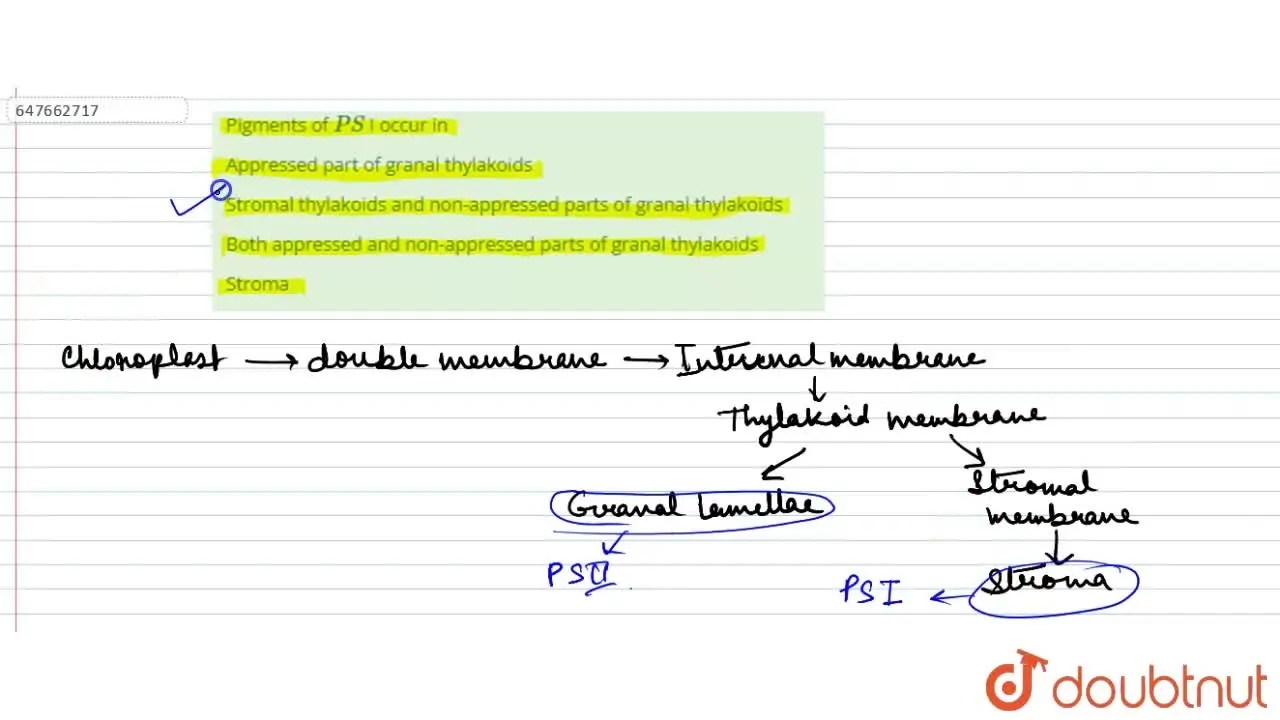 647662717
Pigments of PS I occur in
Appressed part of granal thylakoids
Stromal thylakoids and non-appressed parts of granal thylakoids
Both appressed and non-appressed parts of granal thylakoids
Stroma
Chloroplast → double membrane → Internal membrane
Thylakoid membrane
Stromal
membrane
Granal lamellae
PSII
Stroma
PSI
doubtnut